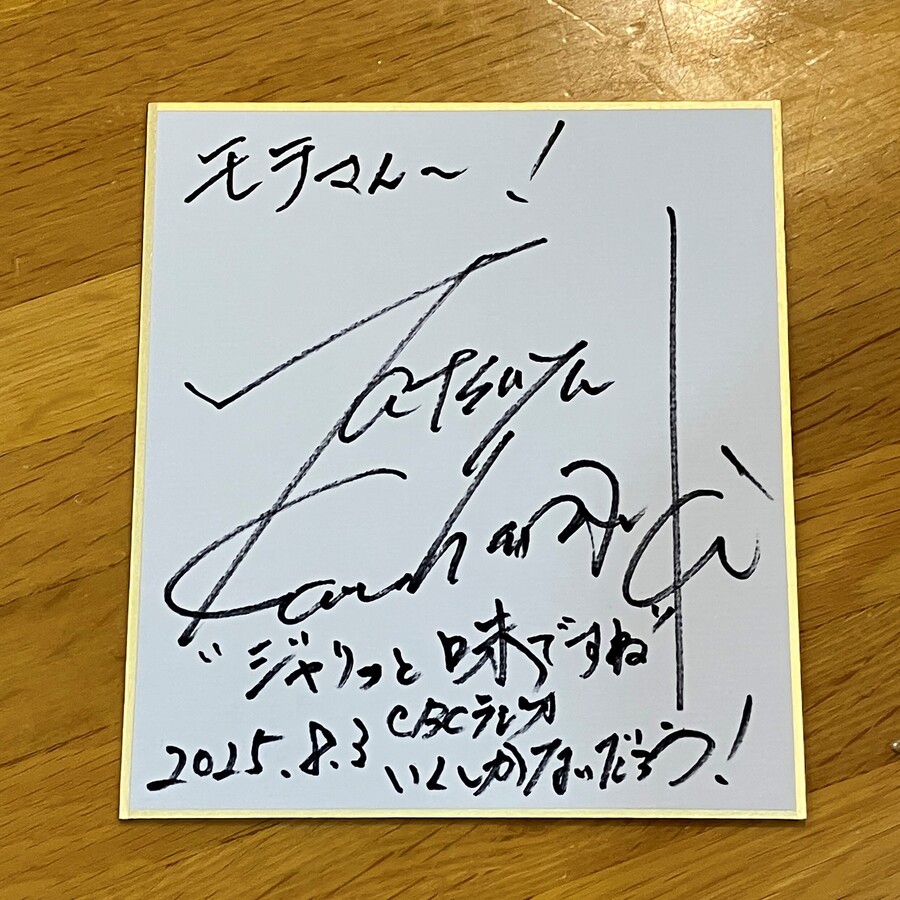 モテマん～!
Tatsuya
"ジャリっと味ですね"
2025.8.3
CBCラジオ
いくしかないだろう!